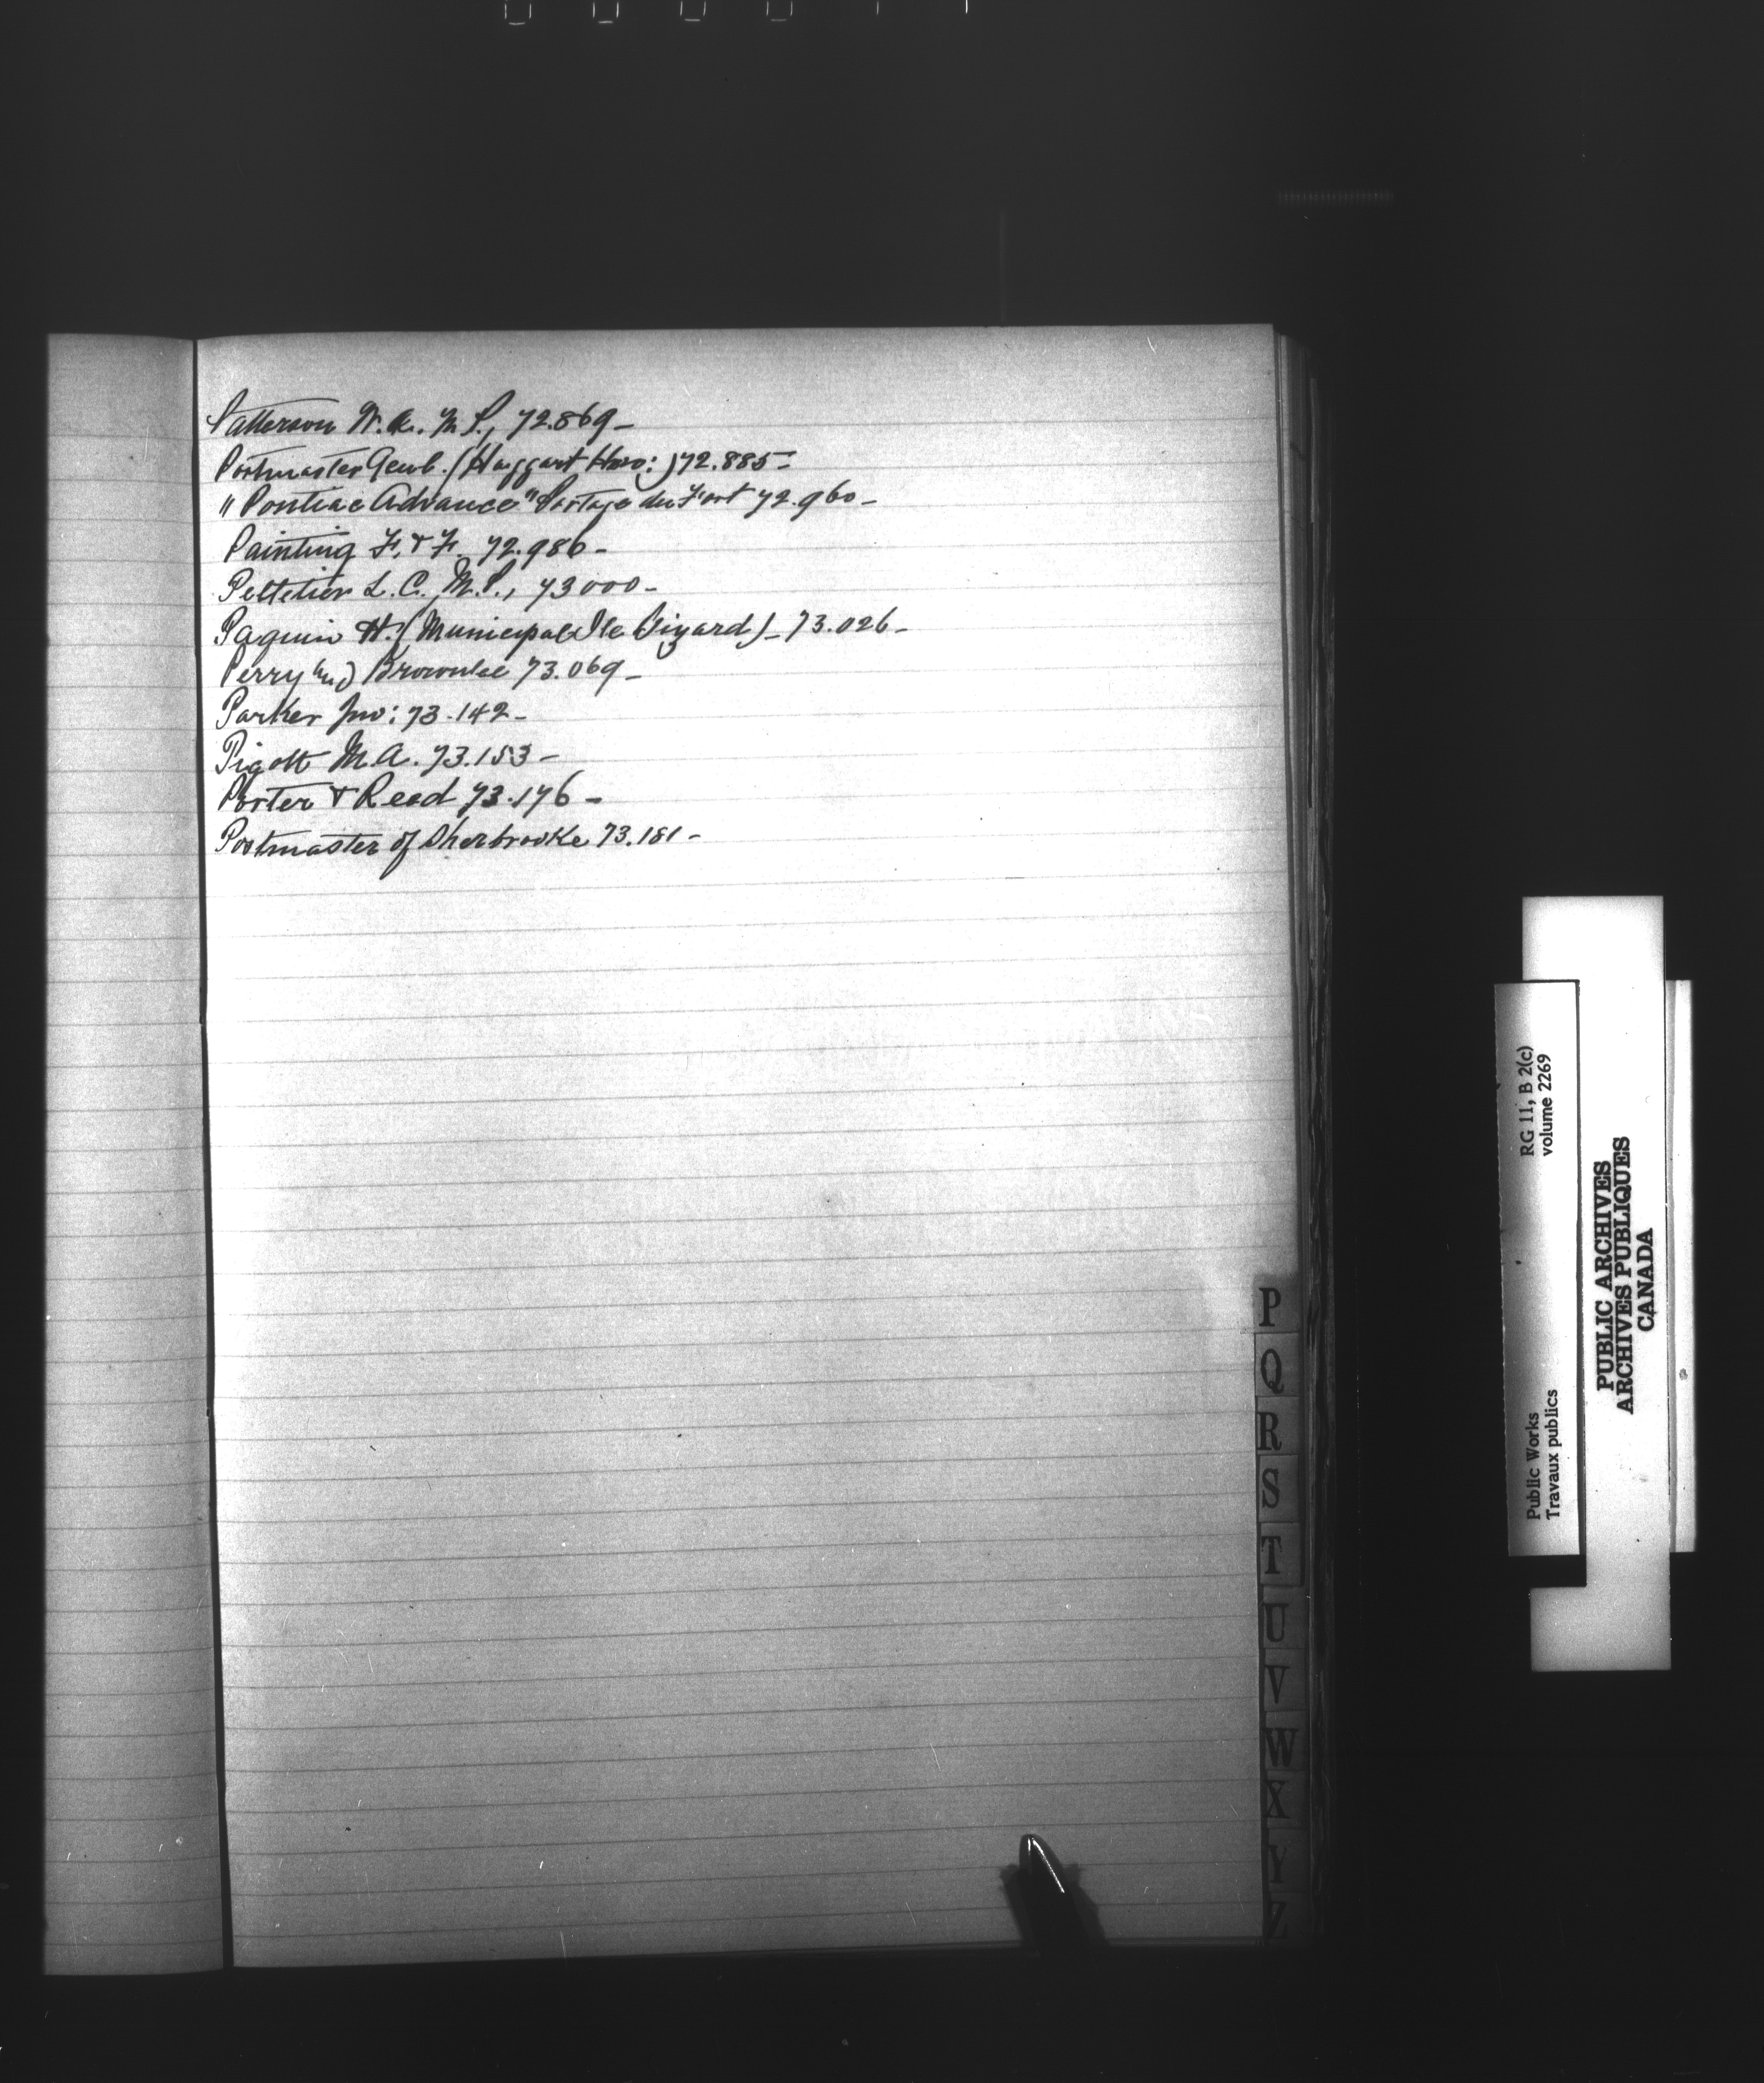 Patterson W. A. M P., 72.869-
Postmaster Genl. (Haggart Hon:) 72.885-
"Pontiac Advance" Portage du Fort 72.960-
Painting F. & F. 72.986-
Pelletier L. C. M.P., 73000-
Paquin H. (Municipal Ile Bizard)- 73.026-
Perry and Brownlee 73.069-
Parker Jno: 73.142-
Pigott M. A. 73.153-
Porter & Read 73.176-
Postmaster of Sherbrooke 73.181-
P
Q
R
S
T
U
V
W
X
Y
Z
Public Works
Travaux publics
RG 11, B 2(c)
volume 2269
PUBLIC ARCHIVES
ARCHIVES PUBLIQUES
CANADA